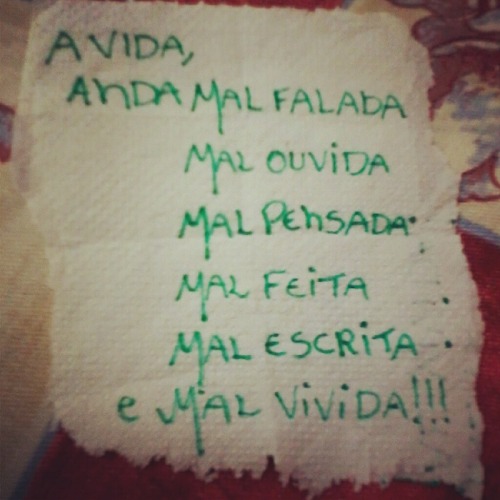 A VIDA,
ANDA MAL FALADA
MAL OUVIDA
MAL PENSADA
MAL FEITA
MAL ESCRITA
e MAL VIVIDA!!!